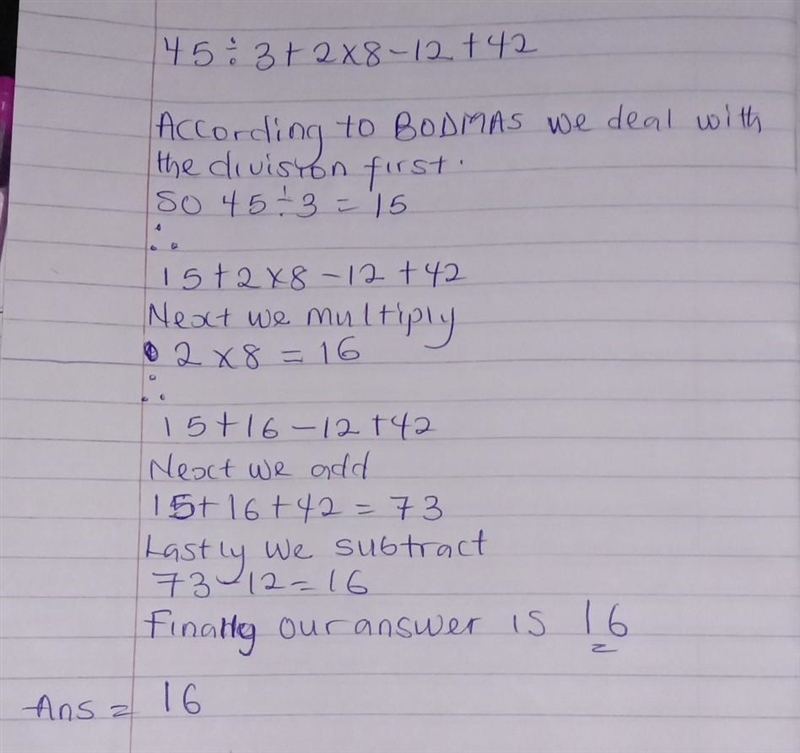 45÷3+2×8-12+42
According to BODMAS we deal with
the division first.
So 45÷3 = 15
∴
15+2×8-12+42
Next we multiply
2×8 = 16
∴
15+16-12+42
Next we add
15+16+42 = 73
Lastly we subtract
73-12=16
Finally our answer is 16
Ans = 16